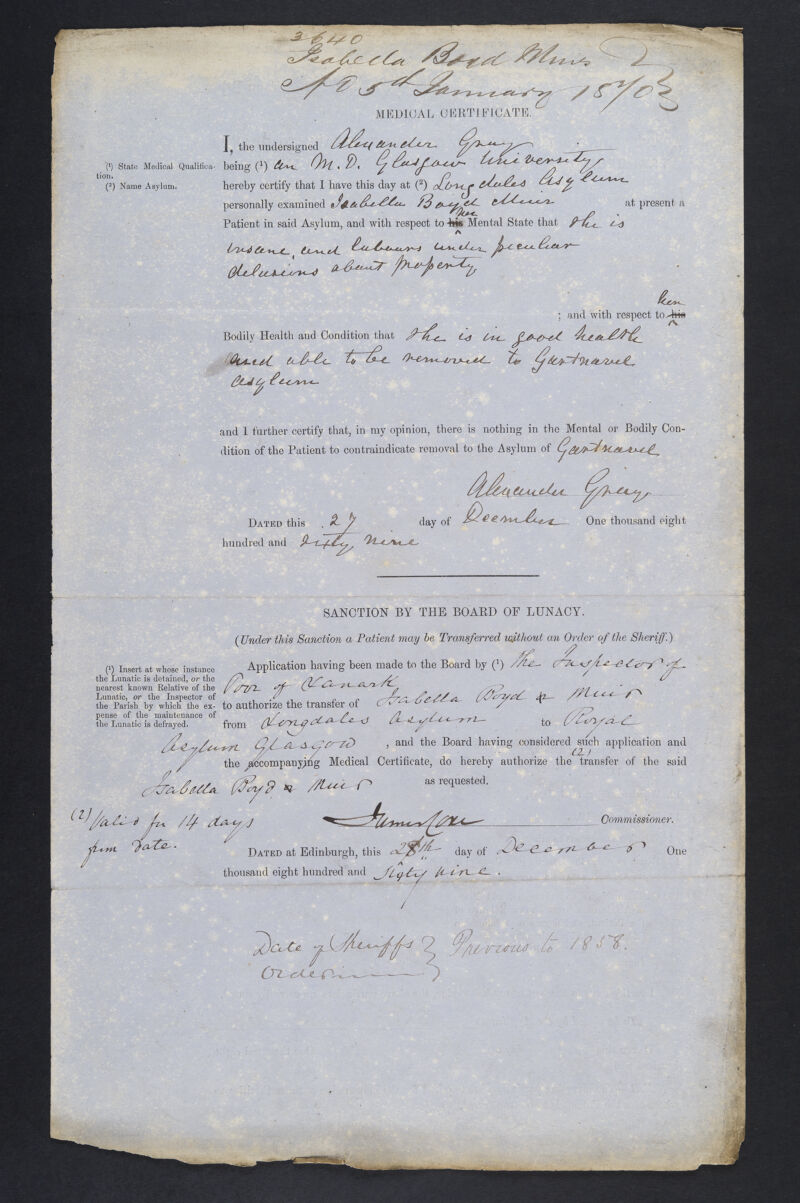 3640
Isabella Boyd Muir
Ad 5th January 1870
MEDICAL CERTIFICATE.
I, the undersigned Alexander Gray
(¹) State Medical Qualifica-
tion.
(²) Name Asylum.
being (¹) an M.D. Glasgow University,
hereby certify that I have this day at (²) Longdales Asylum
personally examined Isabella Boyd Muir at present a
Patient in said Asylum, and with respect to his her Mental State that she is
insane, and labours under peculiar
delusions about property
; and with respect to his her
Bodily Health and Condition that she is in good health
and able to be removed to Gartnavel
asylum
and I further certify that, in my opinion, there is nothing in the Mental or Bodily Con-
dition of the Patient to contraindicate removal to the Asylum of Gartnavel
Alexander Gray
DATED this 27 day of December One thousand eight
hundred and sixty nine
SANCTION BY THE BOARD OF LUNACY.
(Under this Sanction a Patient may be Transferred without an Order of the Sheriff.)
(¹) Insert at whose instance
the Lunatic is detained, or the
nearest known Relative of the
Lunatic, or the Inspector of
the Parish by which the ex-
pense of the maintenance of
the Lunatic is defrayed.
Application having been made to the Board by (¹) the Inspector of
Poor of Lanark
to authorize the transfer of Isabella Boyd or Muir
from Longdales Asylum to Royal
Asylum Glasgow , and the Board having considered such application and
the accompanying Medical Certificate, do hereby authorize the (2) transfer of the said
Isabella Boyd or Muir as requested.
(2) Valid for 14 days
from date.
James Coxe Commissioner.
DATED at Edinburgh, this 28th day of December One
thousand eight hundred and sixty nine.
Date of Sheriffs } Previous to 1858.
Order }